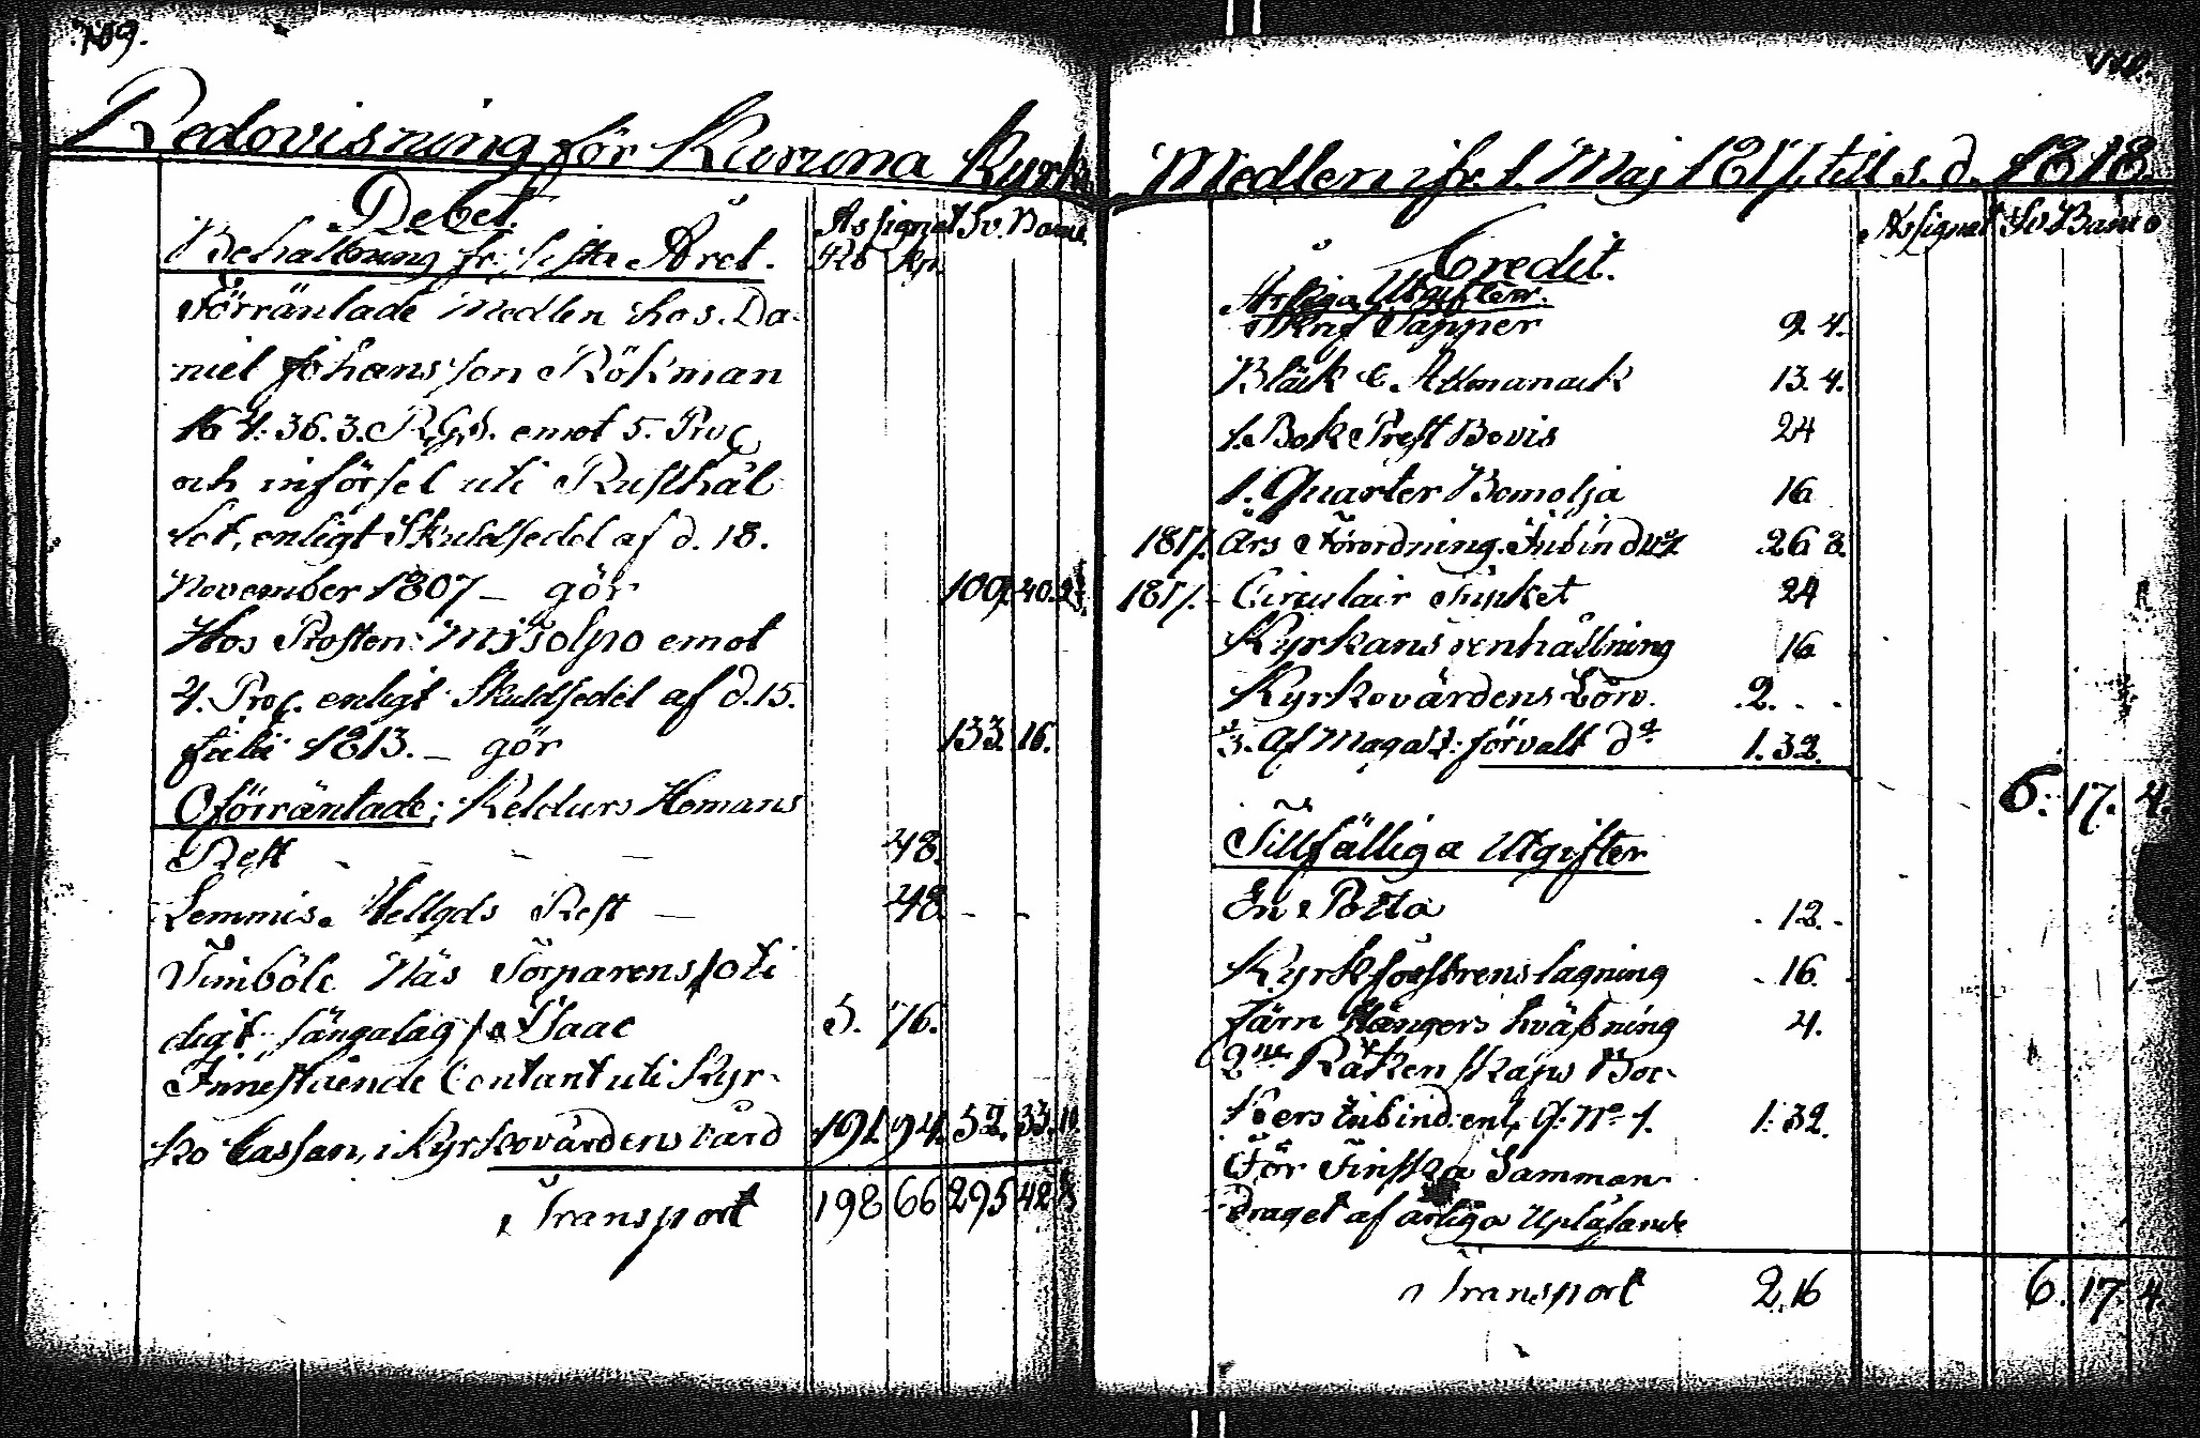 109.
Redovisning för Kuruna Kyrko
Debet.
Assignat Sv. Banco
Behållning fr. sista Året.
Rb Kp.
Förräntade Medlen hos Da-
niel Johansson Rökman
164: 36. 3. R.G.S. emot 5. Proc
och införsel uti Rusthål
let, enligt Skuldsedel af d. 18.
November 1807 — gör 109. 40. 2
Hos Prosten emot
4. Proc. enligt Skuldsedel af d. 15.
Julii 1813. — gör 133. 16.
Oförräntade: Keldurs Homans
Rest 48.
Lemmis. Rest — 48. - -
Timböle Näs Torparens
digt Isaac 5. 76.
Innestående Contant uti Kyr-
ko Cassan, i Kyrkovärdens vård 191. 94. 52. 33. 10.
Transport 198 66 295 42
110.
Medlen ifr. 1. Maj 1817. till s. d. 1818.
Assignat Sv Banco
Credit.
Årliga Utgifter.
Skrif Papper 9. 4.
Bläck & Allmanack 13. 4.
1. Bok Prest Bevis 24
1. Quarter Bomolja 16
1817. Års Förordning. Inbindng 26 8.
1817. Circulair 24
Kyrkans renhållning 16
Kyrkovärdens Lön. 2. - -
3. Af Magaz: förvalt d:o 1. 32.
6. 17. 4.
Tillfälliga Utgifter
En Potta - 12. -
Kyrkfönstrens lagning - 16.
Järn Stängers hväßning 4.
2:ne Räkenskaps Böc-
kers inbind. enl. Q: No 1. 1: 32.
För Finska Samman-
draget af årliga Upläsande
Transport 2. 16 6. 17. 4.